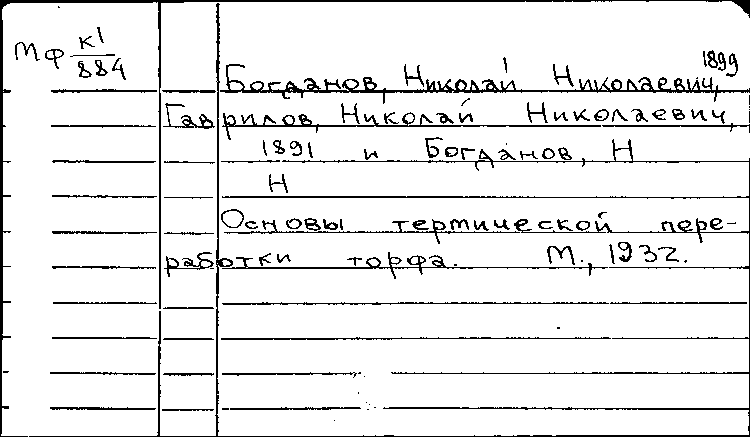 Мф К1
884
1899
Богданов, Николай Николаевич,
Гаврилов, Николай Николаевич,
1891 и Богданов, Н
Н
Основы термической пере-
работки торфа. М., 1932.